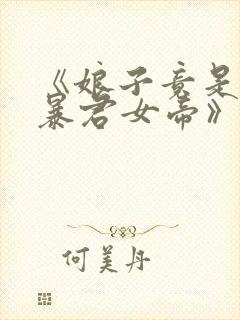 《娘子竟是
暴君女帝》
何美丹